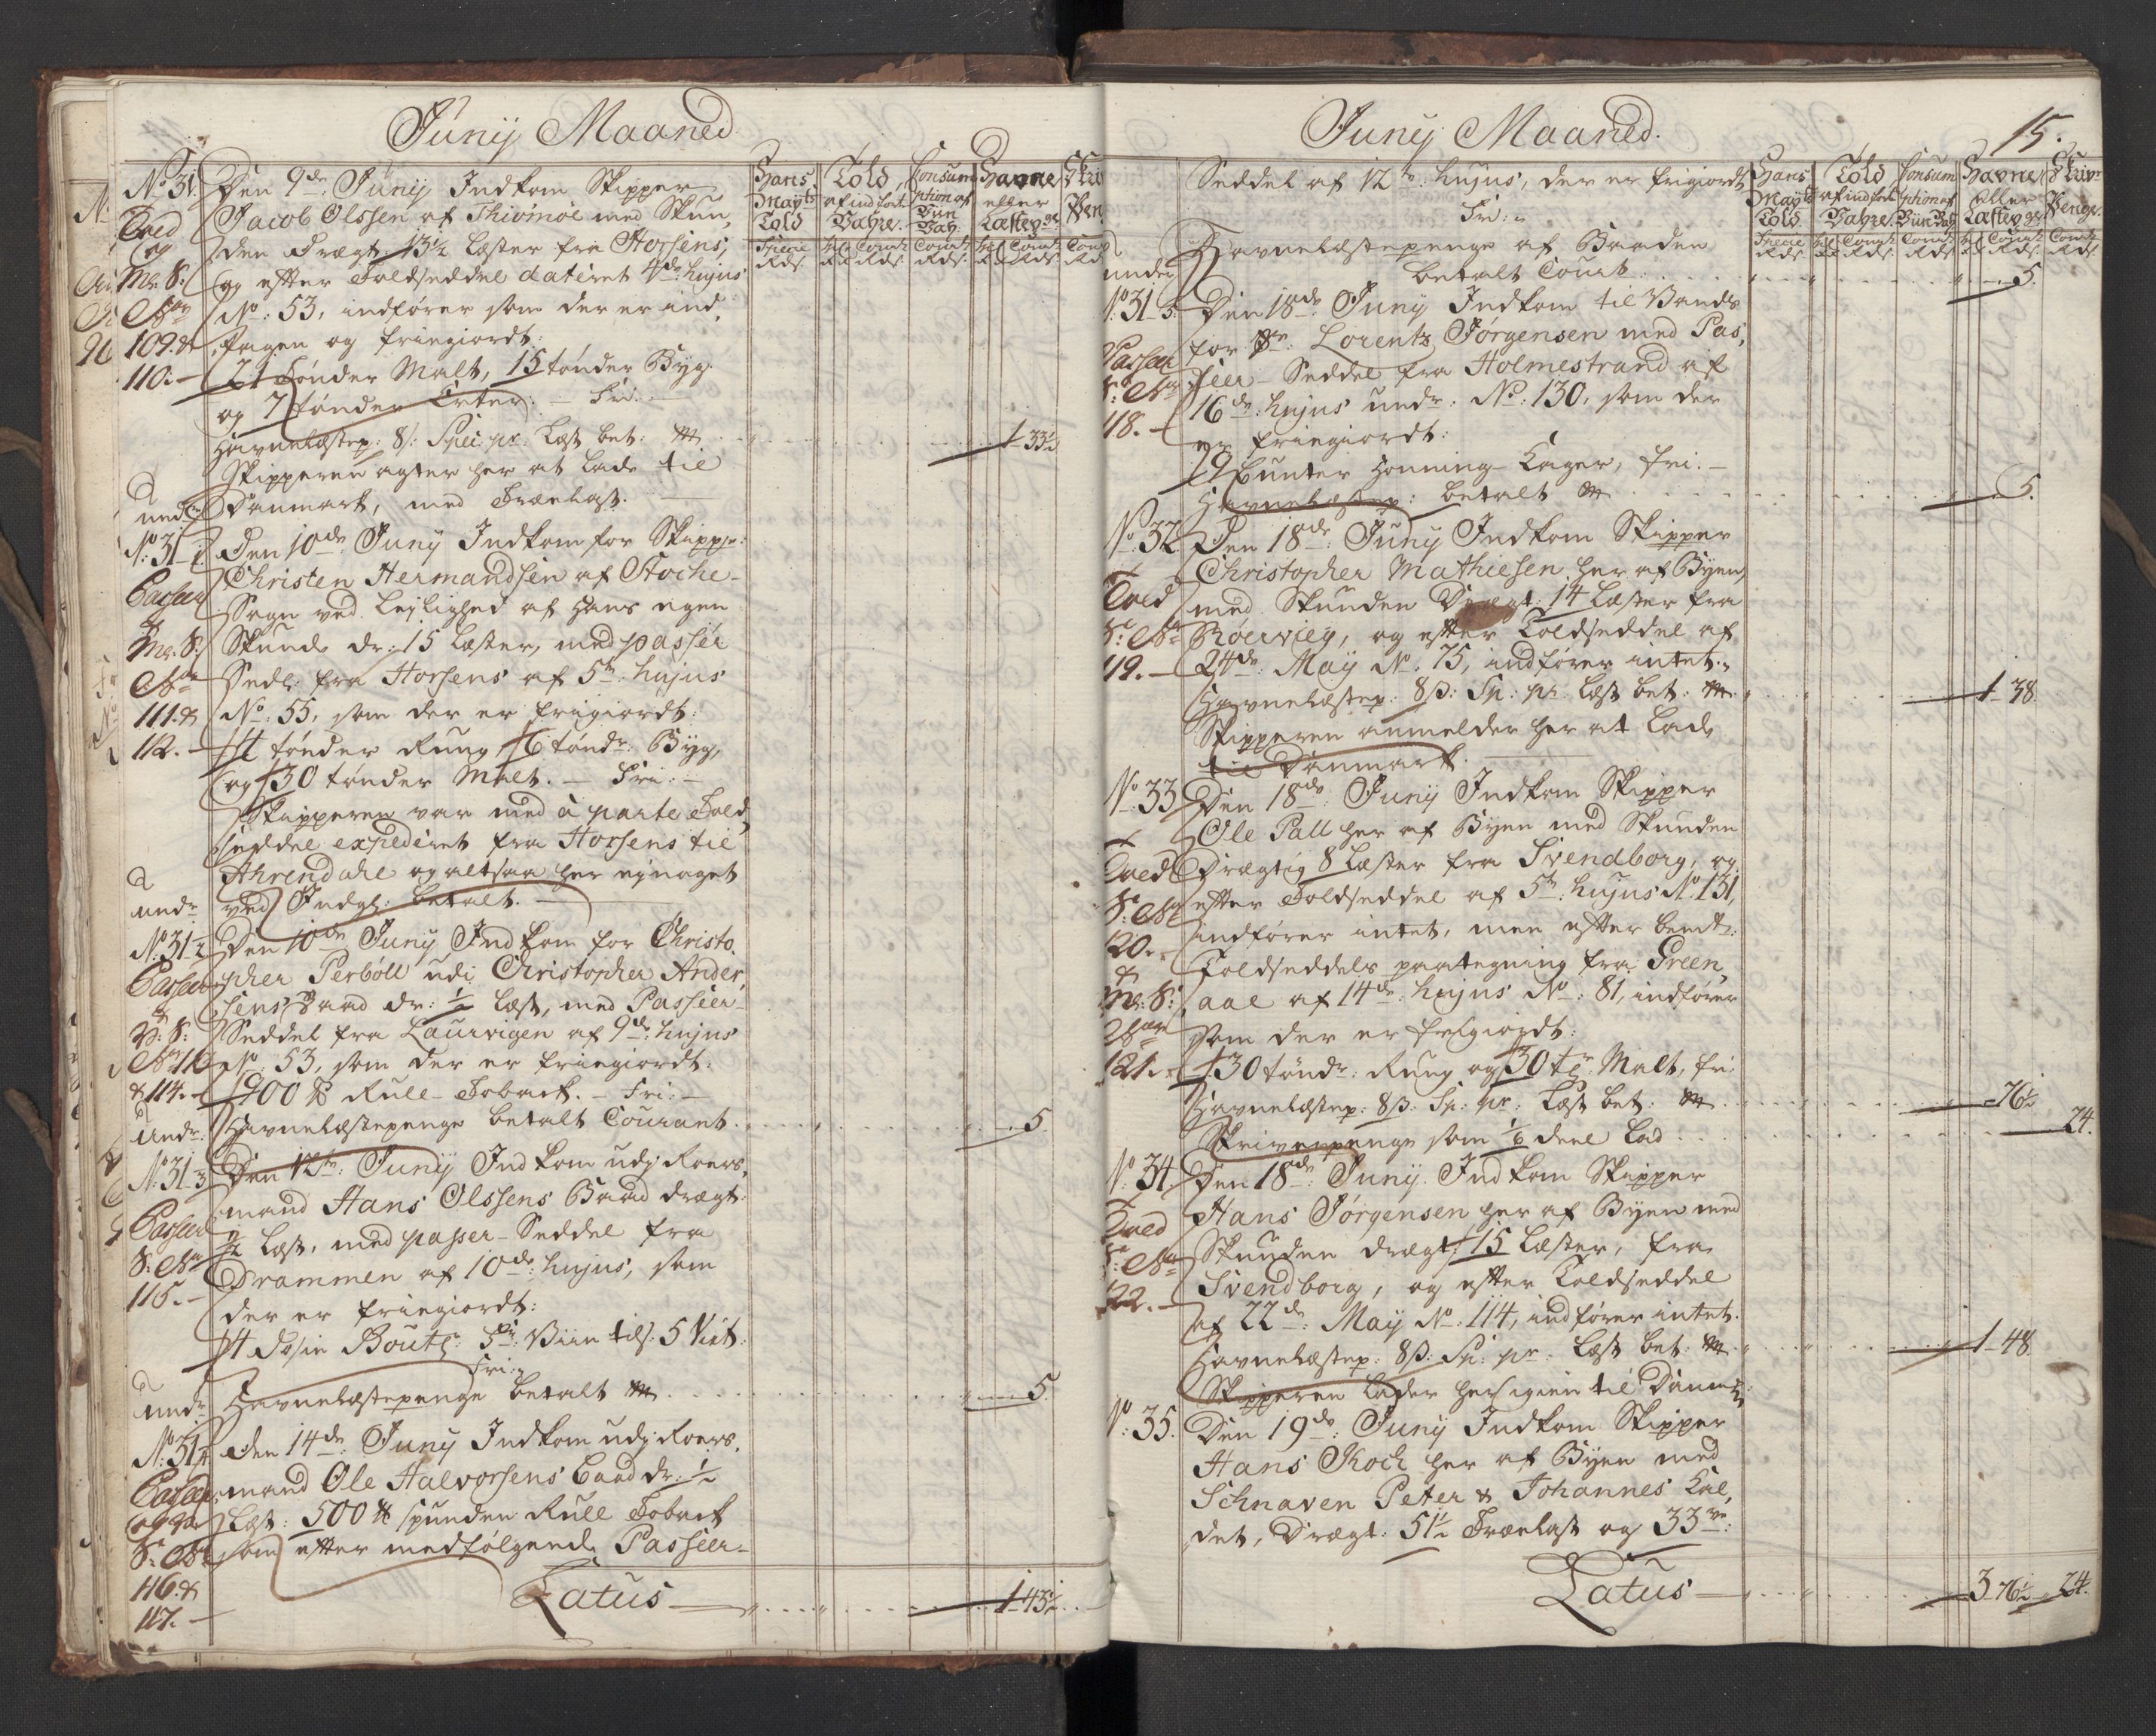 Junij Maaned
Hans Mayts Told
Told af indført Vahre
Consumption af Diin Vah:
Havne eller Læstep:ge
Skriv Pen
Specie Rds.
No 31. Den 9de Junij Indkom Skipper
Jacob Olssen af Thiømøe med Skun,
den Drægt. 13½ Læster fra Horsens,
og efter Toldseddel dateret 4de hujus
No: 53, indfører som der er ind,
tagen og friegiordt:
21 tønder Malt, 15 tønder Byg.
og 7 tønder Erter: — Fri: —
Havnelæstep: 8/: Speci pr. Læst bet: 1 33½
Skipperen agter her at lade til
Danmark, med Trælast.
Toed og
109 &
110. —
und:
No: 31-1. Den 10de Juny Indkom for Skippr:
Christen Hermandsen af Stoche-
Sogn ved Leylighed af Hans egen
Skunde dr: 15 Læster, med passeer
Sedl: fra Horsens af 5te hujus
No: 55, som der er frigiordt:
4 tønder Rung, 6 tøndr: Byg,
og 30 tønder Malt. — Fri: —
Skipperen var med à parte Told,
seddel expederet fra Horsens til
Ahrendahl og altsaa her ej noget
ved Indg: betalt. —
Passeer
111. &
112. —
undr
No: 31-2 Den 10de Juny Indkom for Christo,
pher Perbøll udi Christopher Ander,
sens Baad dr: ½ Læst, med Passeer-
Seddel fra Laurvigen af 9de hujus
No: 53, som der er friegiordt:
400 ℔ Rull-Toback. — Fri: —
Havnelæstepenge betalt Courant 5.
Passeer
& 114. —
Undr:
No: 31-3 Den 12te: Junij Indkom udj Roers,
mand Hans Olssens Baad drægt:
½ Læst, med passer-Seddel fra
Drammen af 10de hujus, som
der er friegiordt:
4 Dosin Boutl: Viin til: 5 Virt:
Fri:
Havnelæstepenge betalt 5.
Passeer
115. —
undr
No: 31-4 Den 14de: Juny Indkom udj Roers,
mand Ole Halvorsens Baad dr: ½
Læst: 500 ℔ spunden Rull Toback
som efter medfølgende Passeer-
116. &
117. —
Latus — 1 45½
Juny Maaned.
15.
Hans Mayts Told
Told af indført Vahre.
Consumption af Diin Vah
Havne eller Læstep:ge
Skriver Penge.
Seddel af 12te hujus, der er frigiordt
Fri:
Havnelæstepenge af Baaden
betalt Court 5.
under
No 31-5. Den 18de Juny Indkom til Vands
for Sr: Lorentz Jørgensen med Pas,
seer-Seddel fra Holmestrand af
16de: hujus undr: No: 130, som der
er friegiordt:
9 Bunter Honning-Kager, fri: —
Havnelæstep: betalt 5.
Passeer
118. —
No: 32. Den 18de: Juny Indkom Skipper
Christopher Mathiesen her af Byen,
med Skunden Drægt: 14 Læster fra
Røervieg, og efter Toldseddel af
24de: May No: 75, indfører intet.
Havnelæstep: 8ß: Sp: pr. Læst bet: 1 38.
Skipperen anmelder her at lade
til Danmark.
Toed
119. —
No: 33. Den 18de: Junij Indkom Skipper
Ole Pall her af Byen med Skunden
Drægtig 8 Læster fra Svendborg, og
efter Toldseddel af 5te: hujus No. 131,
indfører intet, men efter bemt:
Toldseddels paategning fra Green,
aae af 14de: hujus No: 81, indfører
som der er frigiordt:
30 tøndr: Rung og 30 tr: Malt, fri:
Havnelæstep: 8ß: Sp: pr: Læst bet: 76½
Skriverpenge som 1/6 deel Lad 24.
Toed
120. &
121. —
No: 34. Den 18de: Junij Indkom Skipper
Hans Jørgensen her af Byen med
Skunden drægt: 15 Læster, fra
Svendborg, og efter Toldseddel
af 22de: May No: 114, indfører intet.
Havnelæstep: 8ß: Sp: pr. Læst bet: 1 48.
Skipperen lader her igien til Danm:
Toed
122. —
No: 35. Den 19de: Juny Indkom Skipper
Hans Koch her af Byen med
Schnaven Peter & Johannes Kal,
det, Drægt: 51½ Trælast og 33
Latus — 3 76½ 24.